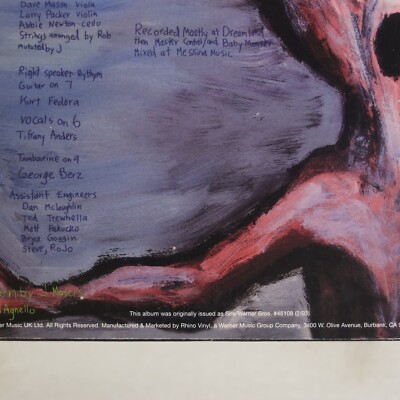 Dave Mason Viola
Larry Packer violin
Abbie Newton cello
Strings arranged by Rob
mutated by J
Recorded Mostly at Dreamland
then Master Control/and Baby Monster
Mixed at Messina Music
Right speaker Rythym
Guitar on 7
Kurt Fedora
vocals on 6
Tiffany Anders
Tambourine on 9
George Berz
Assistant Engineers
Dan McLoughlin
Ted Trewhella
Matt
Bryce Goggin
Steve, RoJo
by J Mascis
Agnello
This album was originally issued as Sire/Warner Bros. #45108 (2/93)
Music UK Ltd. All Rights Reserved. Manufactured & Marketed by Rhino Vinyl, a Warner Music Group Company, 3400 W. Olive Avenue, Burbank, CA